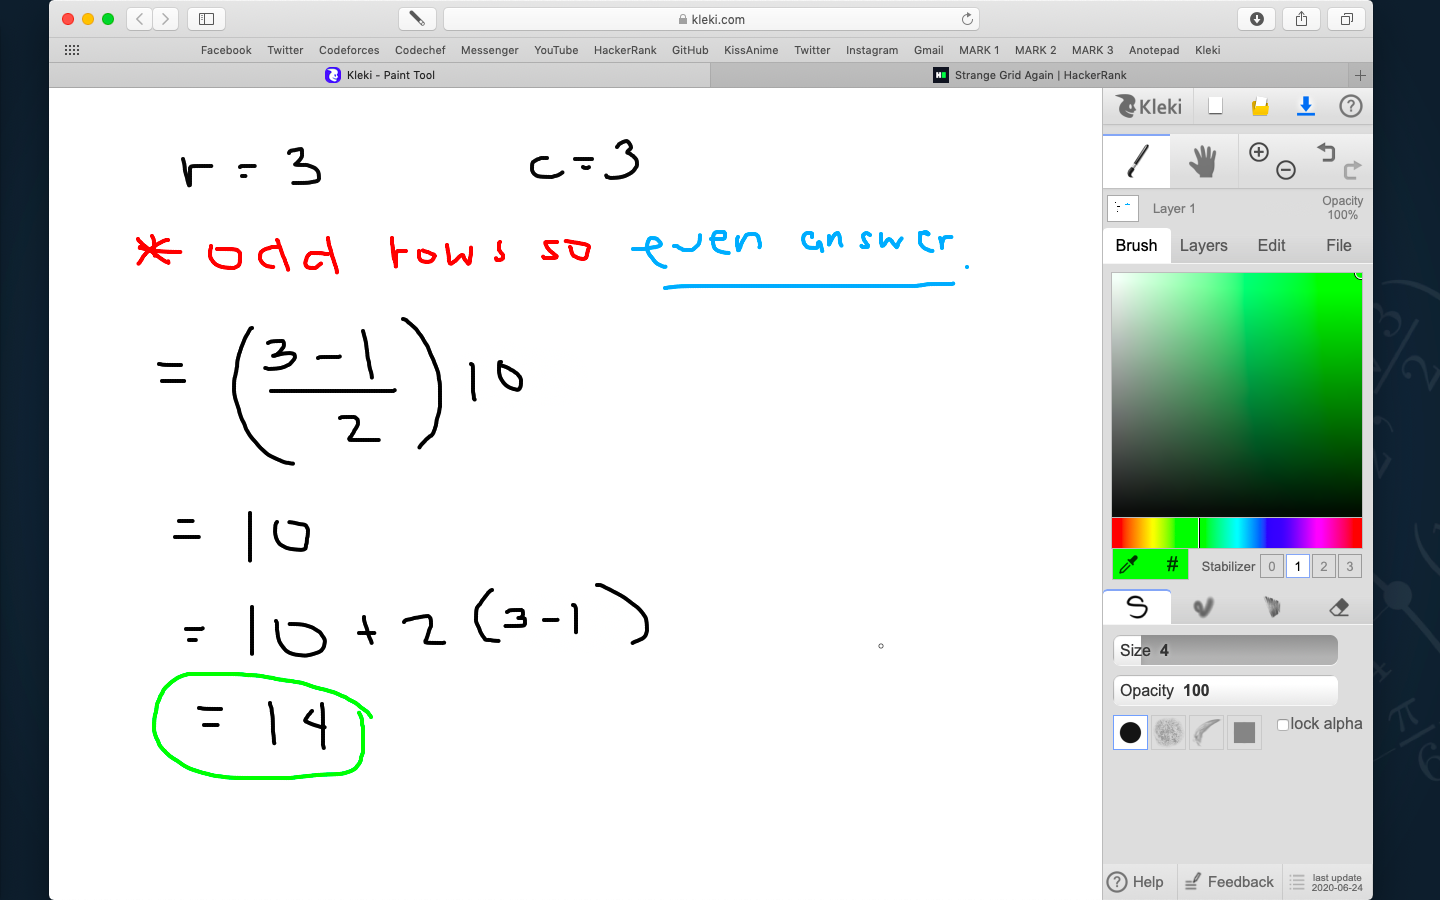 kleki.com
Facebook Twitter Codeforces Codechef Messenger YouTube HackerRank GitHub KissAnime Twitter Instagram Gmail MARK 1 MARK 2 MARK 3 Anotepad Kleki
Kleki - Paint Tool
Strange Grid Again | HackerRank
r = 3 c = 3
* odd rows so even answer.
= (3 - 1 / 2) 10
= 10
= 10 + 2 (3 - 1)
= 14
Kleki
Layer 1
Opacity
100%
Brush Layers Edit File
# Stabilizer 0 1 2 3
Size 4
Opacity 100
lock alpha
Help Feedback last update
2020-06-24